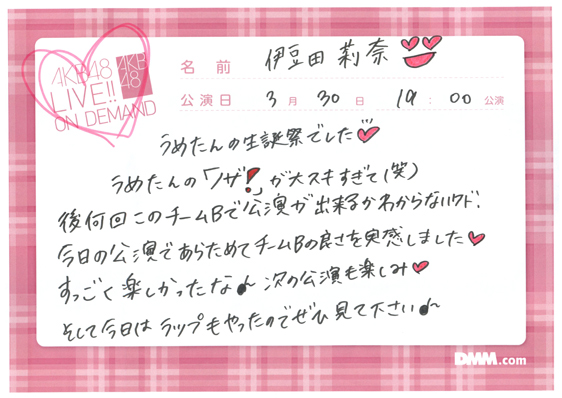 AKB48
LIVE!!
ON DEMAND
AKB
48
名前 伊豆田 莉奈
公演日 3月30日 19:00公演
うめたんの生誕祭でした
うめたんの「ノザ!」が大スキすぎて(笑)
後何回このチームBで公演が出来るかわからないケド!
今日の公演であらためてチームBの良さを実感しました
すっごく楽しかったな♪ 次の公演も楽しみ
そして今日はラップもやったのでぜひ見て下さい♪
DMM.com